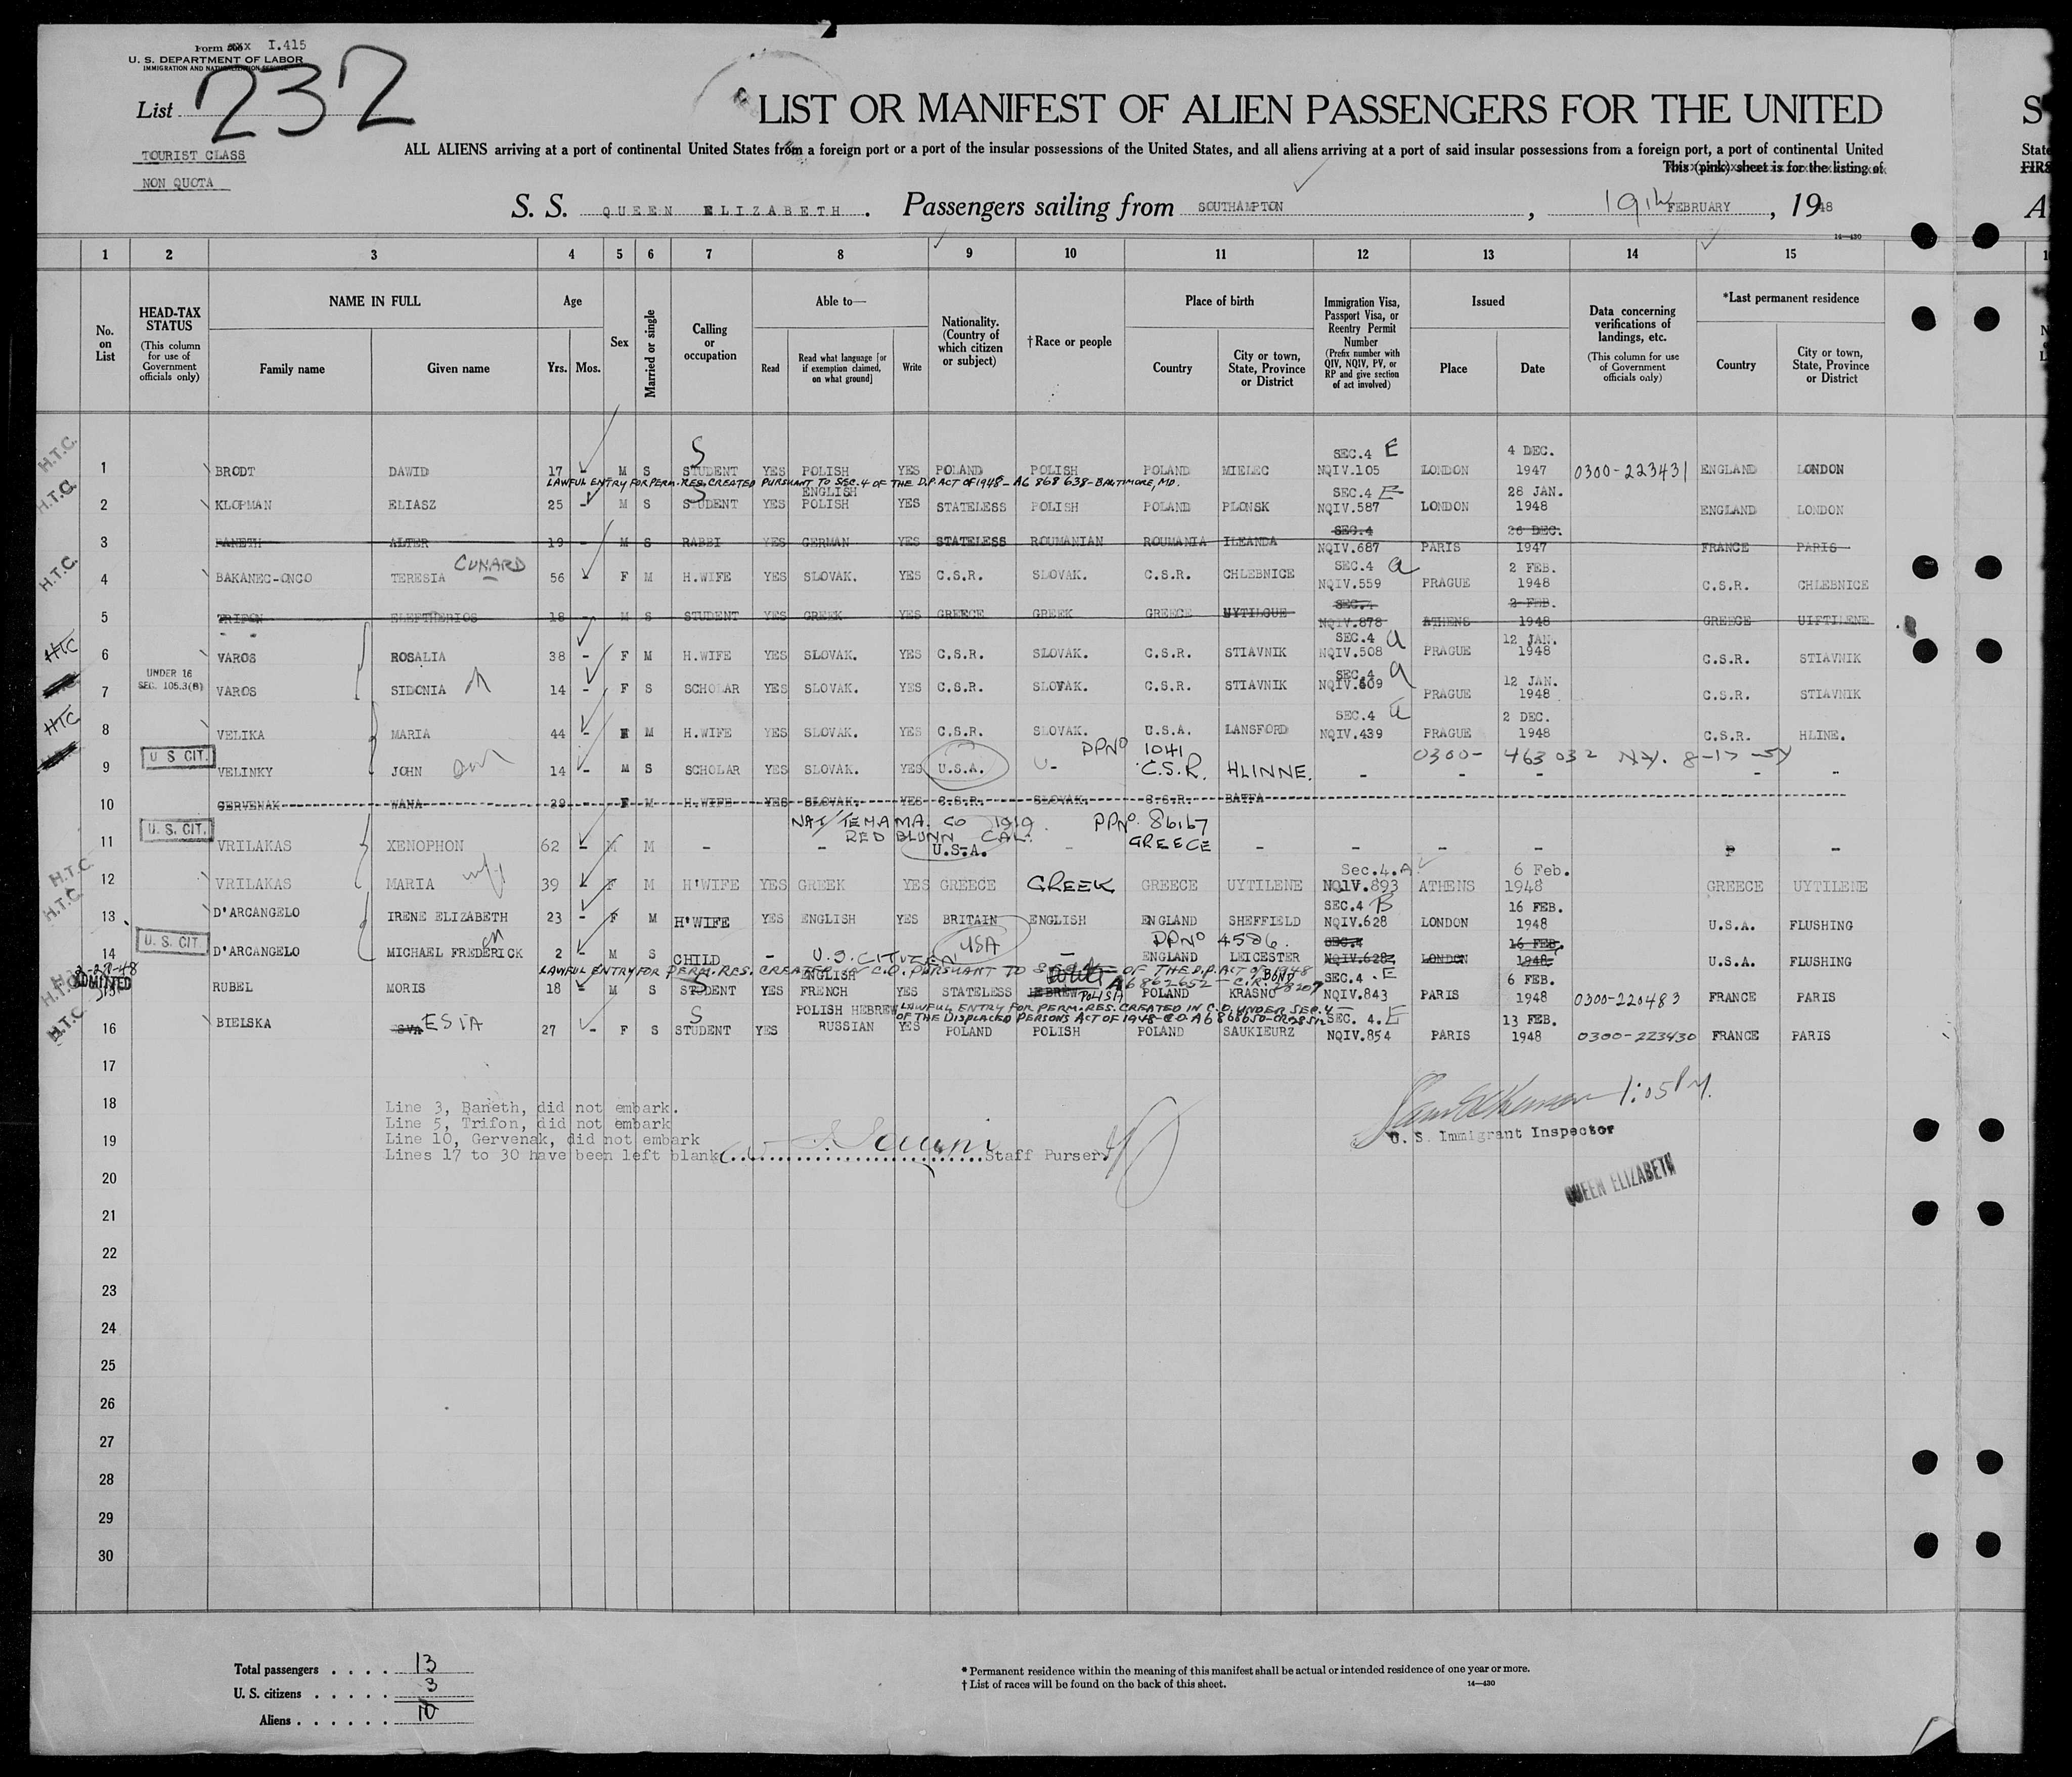 Form xxx I.415
U. S. DEPARTMENT OF LABOR
IMMIGRATION AND NATURALIZATION SERVICE
List 232
TOURIST CLASS
NON QUOTA
LIST OR MANIFEST OF ALIEN PASSENGERS FOR THE UNITED
ALL ALIENS arriving at a port of continental United States from a foreign port or a port of the insular possessions of the United States, and all aliens arriving at a port of said insular possessions from a foreign port, a port of continental United
This (pink) sheet is for the listing of
S. S. QUEEN ELIZABETH. Passengers sailing from SOUTHAMPTON, 19th FEBRUARY, 1948
S
State
FIRS
A
14—430
1 2 3 4 5 6 7 8 9 10 11 12 13 14 15
No. on List
HEAD-TAX STATUS (This column for use of Government officials only)
NAME IN FULL
Family name Given name
Age
Yrs. Mos.
Sex
Married or single
Calling or occupation
Able to—
Read Read what language [or if exemption claimed, on what ground] Write
Nationality. (Country of which citizen or subject)
†Race or people
Place of birth
Country City or town, State, Province or District
Immigration Visa, Passport Visa, or Reentry Permit Number (Prefix number with QIV, NQIV, PV, or RP and give section of act involved)
Issued
Place Date
Data concerning verifications of landings, etc. (This column for use of Government officials only)
*Last permanent residence
Country City or town, State, Province or District
H.T.C. 1 BRODT DAWID 17 - M S S STUDENT YES POLISH YES POLAND POLISH POLAND MIELEC SEC.4 E NQIV.105 LONDON 4 DEC. 1947 0300-223431 ENGLAND LONDON
LAWFUL ENTRY FOR PERM. RES. CREATED PURSUANT TO SEC. 4 OF THE D.P. ACT OF 1948 - A6 868 638 - BALTIMORE, MD.
H.T.C. 2 KLOPMAN ELIASZ 25 - M S S STUDENT YES ENGLISH POLISH YES STATELESS POLISH POLAND PLONSK SEC.4 E NQIV.587 LONDON 28 JAN. 1948 ENGLAND LONDON
3 BANETH ALTER 19 - M S RABBI YES GERMAN YES STATELESS ROUMANIAN ROUMANIA ILEANDA SEC.4 NQIV.687 PARIS 26 DEC. 1947 FRANCE PARIS
CUNARD
H.T.C. 4 BAKANEC-ONCO TERESIA 56 - F M H.WIFE YES SLOVAK. YES C.S.R. SLOVAK. C.S.R. CHLEBNICE SEC.4 a NQIV.559 PRAGUE 2 FEB. 1948 C.S.R. CHLEBNICE
5 TRIFON ELEFTHERIOS 18 - M S STUDENT YES GREEK YES GREECE GREEK GREECE MYTILGUE SEC.4 NQIV.878 ATHENS 2 FEB. 1948 GREECE UIFTILENE
HTC 6 VAROS ROSALIA 38 - F M H.WIFE YES SLOVAK. YES C.S.R. SLOVAK. C.S.R. STIAVNIK SEC.4 a NQIV.508 PRAGUE 12 JAN. 1948 C.S.R. STIAVNIK
UNDER 16 SEC. 105.3(B)
7 VAROS SIDONIA 14 - F S SCHOLAR YES SLOVAK. YES C.S.R. SLOVAK. C.S.R. STIAVNIK SEC.4 a NQIV.509 PRAGUE 12 JAN. 1948 C.S.R. STIAVNIK
HTC 8 VELIKA MARIA 44 - F M H.WIFE YES SLOVAK. YES C.S.R. SLOVAK. U.S.A. LANSFORD SEC.4 a NQIV.439 PRAGUE 2 DEC. 1948 C.S.R. HLINE.
PPNo 1041 0300-463032 N.Y. 8-17-54
U S CIT. 9 VELINKY JOHN son 14 - M S SCHOLAR YES SLOVAK. YES U.S.A. U- C.S.R. HLINNE. - - - - -
10 GERVENAK WANA 39 - F M H.WIFE YES SLOVAK. YES C.S.R. SLOVAK. C.S.R. BATFA
NAT/TEHAMA. CO 1919 PPNo. 86167
RED BLUNN CAL.
U. S. CIT. 11 VRILAKAS XENOPHON 62 - M M - - U.S.A. - GREECE - - - - -
H.T.C. 12 VRILAKAS MARIA wife 39 - F M H'WIFE YES GREEK YES GREECE GREEK GREECE UYTILENE Sec.4.A NQIV.893 ATHENS 6 Feb. 1948 GREECE UYTILENE
H.T.C. 13 D'ARCANGELO IRENE ELIZABETH 23 - F M H'WIFE YES ENGLISH YES BRITAIN ENGLISH ENGLAND SHEFFIELD SEC.4 B NQIV.628 LONDON 16 FEB. 1948 U.S.A. FLUSHING
PPNo 4586.
U. S. CIT. 14 D'ARCANGELO MICHAEL FREDERICK 2 - M S CHILD - U.S. CITIZEN USA - ENGLAND LEICESTER SEC.4 NQIV.628 LONDON 16 FEB. 1948 U.S.A. FLUSHING
LAWFUL ENTRY FOR PERM. RES. CREATED IN C.O. PURSUANT TO SEC. 4 OF THE D.P. ACT OF 1948
A6862652 - C.R. 28207
BOND
ADMITTED
H.T.C. RUBEL MORIS 18 - M S S STUDENT YES ENGLISH FRENCH YES STATELESS HEBREW POLISH POLAND KRASNO SEC.4. E NQIV.843 PARIS 6 FEB. 1948 0300-220483 FRANCE PARIS
LAWFUL ENTRY FOR PERM. RES. CREATED IN C.O. UNDER SEC. 4
OF THE DISPLACED PERSONS ACT OF 1948-C.O. A6868650-CR28512
H.T.C. 16 BIELSKA ESIA 27 - F S S STUDENT YES POLISH HEBREW RUSSIAN YES POLAND POLISH POLAND SAUKIEURZ SEC. 4. E NQIV.854 PARIS 13 FEB. 1948 0300-223430 FRANCE PARIS
17
18
Line 3, Baneth, did not embark.
Line 5, Trifon, did not embark
19
Line 10, Gervenak, did not embark
Lines 17 to 30 have been left blank Staff Purser
1:05 PM.
U. S. Immigrant Inspector
QUEEN ELIZABETH
20
21
22
23
24
25
26
27
28
29
30
Total passengers . . . . 13
U. S. citizens . . . . . 3
Aliens . . . . . . 10
* Permanent residence within the meaning of this manifest shall be actual or intended residence of one year or more.
† List of races will be found on the back of this sheet.
14—430